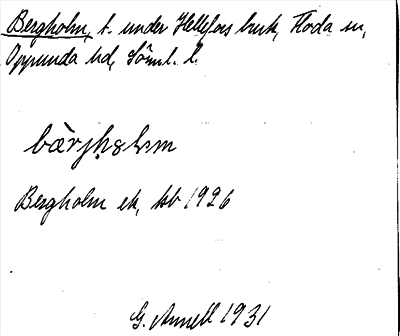 Bergholm, t. under Hellefors bruk, Floda sn,
Oppunda hd, Sömnl. l.
Bergholm ek, kb 1926
G. Annell 1931